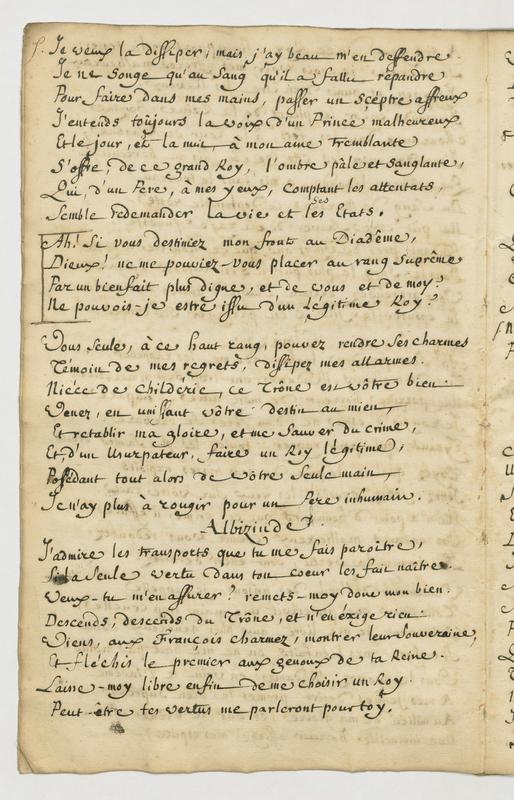 Je veux la dissiper; mais j'ay beau m'en deffendre.
Je ne songe qu'au sang qu'il a fallu répandre
Pour faire dans mes mains, passer un Scéptre affreux
J'entends toûjours la voix d'un Prince malheureux
Et le jour, et la nuit, à mon ame tremblante
S'offre, de ce grand Roy, l'ombre pâle et sanglante,
Qui, d'un Pere, à mes yeux, comptant les attentats,
Semble redemander la vie et ses les Etats.
Ah! Si vous destiniez mon front au Diadême,
Dieux! ne me pouviez-vous placer au rang suprême
Par un bienfait plus digne, et de vous et de moy?
Ne pouvois-je estre issu d'un Légitime Roy?
Vous seule, à ce haut rang, pouvez rendre ses charmes
Témoin de mes regrets, dissipez mes allarmes.
Niéce de Childéric, ce Trône est vôtre bien.
Venez, en unissant vôtre destin au mien,
Et retablir ma gloire, et me sauver du crime,
Et d'un Usurpateur, faire un Roy légitime,
Possédant tout alors de vôtre seule main,
Je n'ay plus à rougir pour un Pere inhumain.
Albizinde
J'admire les transports que tu me fais paroître,
Si la seule vertu dans ton coeur les fait naître.
Veux-tu m'en assurer? remets-moy donc mon bien.
Descends, descends du Trône, et n'en éxige rien.
Viens, aux François charmez, montrer leur Souveraine,
Et fléchis le premier aux genoux de ta Reine.
Laisse-moy libre enfin de me choisir un Roy.
Peut-être tes vertus me parleront pour toy.